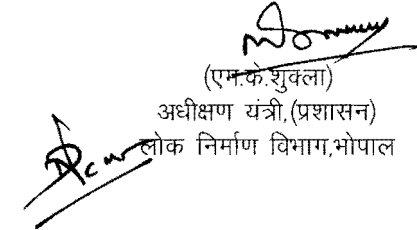 (एम.के.शुक्ला)
अधीक्षण यंत्री,(प्रशासन)
लोक निर्माण विभाग,भोपाल